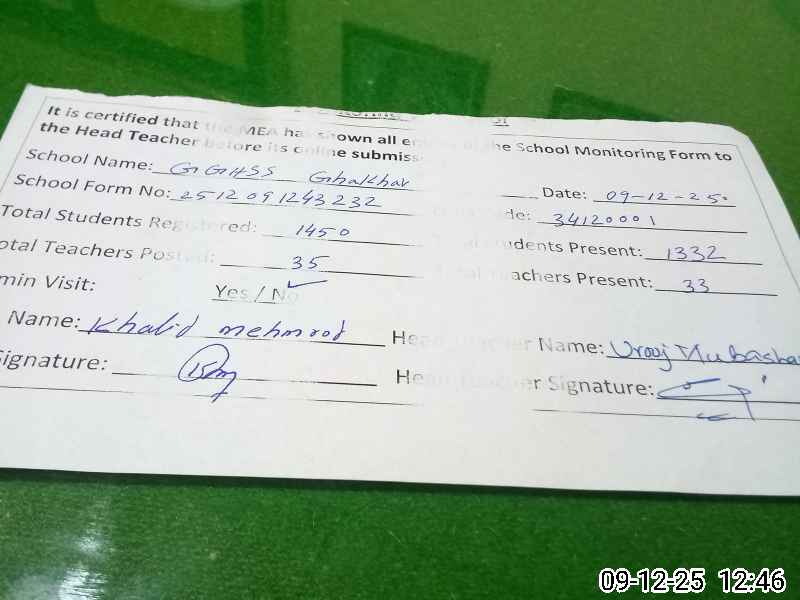 It is certified that the MEA has shown all of the School Monitoring Form to
the Head Teacher before its online
School Name: GGHSS Ghakhar Date: 09-12-25
School Form No: 2512091243232 34120001
Total Students Registered: 1450 Students Present: 1332
Total Teachers Posted: 35 Teachers Present: 33
min Visit: Yes / No ✓
Name: Khalid mehmood Head Teacher Name: Urooj Mubashar
Signature: Head Teacher Signature:
09-12-25 12:46